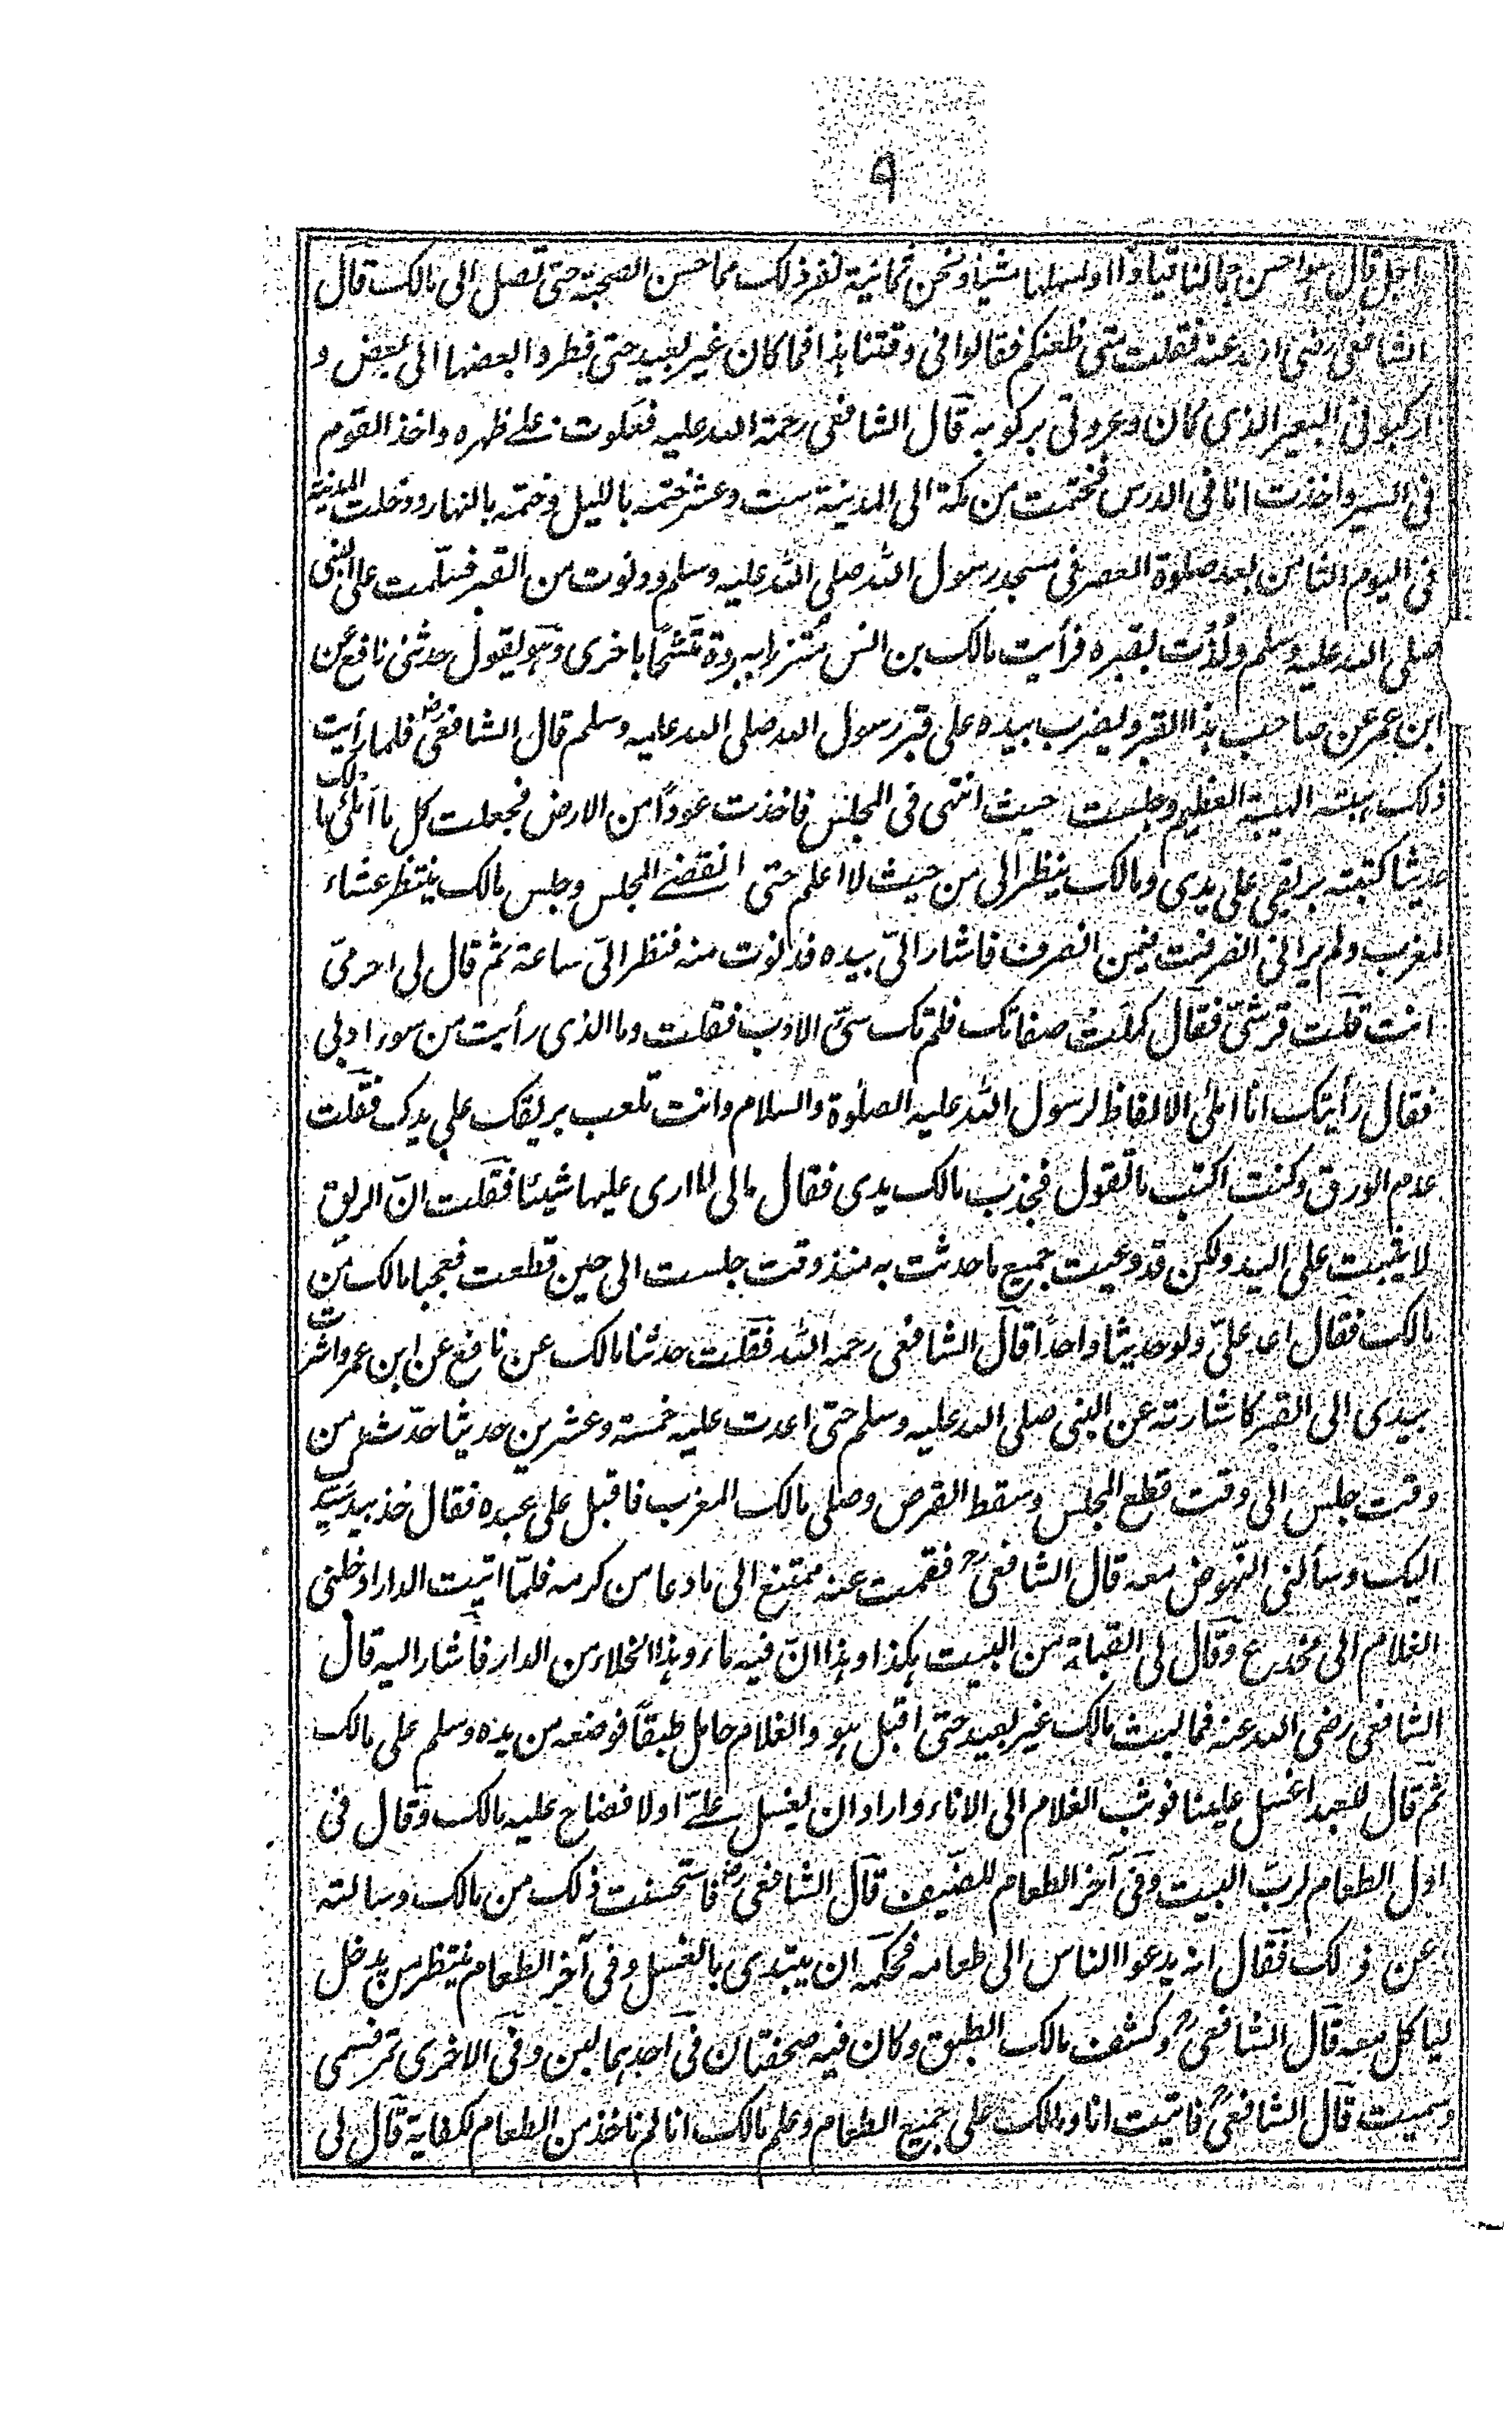 ۹
اجل قال هو احسن جمالنا قيادا واسهلها مشيا ونحن ثمانية نفر ذلک مما حسن الصحبة حتى تصل الى مالک قال
الشافعى رضى الله عنه فقلت متى ظعنكم فقالوا فى وقتنا هذا فما كان غير بعيد حتى قطروا بعضها الى بعض و
اركبونى البعير الذى كان وعرونى بركوبه قال الشافعى رحمة الله عليه فعلوت على ظهره واخذ القوم
فى السير واخذت انا فى الدرس فختمت من مكة الى المدينة ست وعشر ختمه بالليل وختمه بالنهار ودخلت المدينة
فى اليوم الثامن بعد صلوة العصر فى مسجد رسول الله صلى الله عليه وسلم ودنوت من القبر فسلّمت على النبى
صلى الله عليه وسلم ولُذْت بقبره فرأيت مالک بن انس مُتزرا ببردة متّشحًا باخرى وهو يقول حدثنى نافع عن
ابن عمر عن صاحب هذا القبر ويضرب بيده على قبر رسول الله صلى الله عليه وسلم قال الشافعىؓ فلما رأيت
ذلک هبته الهيبة العظيم وجلست حيث انتهى فى المجلس فاخذت عودًا من الارض فجعلت كل ما املىٰ مالک
حديثا كتبته بريقى على يدى ومالک ينظر الى من حيث لا اعلم حتى انقضے المجلس وجلس مالک ينتظر عشاء
لمغرب ولم يرانى انصرفت فيمن انصرف فاشار الىّ بيده فدنوت منه فنظر الىّ ساعة ثم قال لى احرمىّ
انت قلت قرشىّ فقال كملت صفاتک فلم تک سئ الادب فقلت وما الذى رأيت من سوء ادبى
فقال رأيتک انا املى الالفاظ لرسول الله عليه الصلوة والسلام وانت تلعب بريقک على يدک فقلت
عدم الورق وكنت اكتب ما تقول فجذب مالک يدى فقال مالى لا ارى عليها شيئا فقلت انّ الريق
لا يثبت على اليد ولكن قد وعيت جميع ما حدثت به منذ وقت جلست الى حين قطعت فعجبا مالک من
مالک فقال اعد علىّ ولو حديثا واحدًا قال الشافعى رحمه الله فقلت حدثنا مالک عن نافع عن ابن عمر واشرت
بيدى الى القبر كاشارته عن النبى صلى الله عليه وسلم حتى اعدت عليه خمسة وعشرين حديثا حدّث من
وقت جلس الى وقت قطع المجلس وسقط القرص وصلى مالک المغرب فاقبل على عبده فقال خذ بيد سيّدک
اليک وسألنى النّهوض معه قال الشافعىؒ فقمت عنه ممتنع الى ما دعا من كرمه فلمّا اتيت الدار ادخلنى
الغلام الى مخدع وقال لى القبلة من البيت هكذا وهذا انّ فيه ماء وهذا الخلاء من الدار فاشار اليه قال
الشافعى رضى الله عنه فما لبث مالک غير بعيد حتى اقبل هو والغلام حامل طبقًا فوضعه من يده وسلم على مالک
ثم قال للعبد اغسل علينا فوثب الغلام الى الاناء واراد ان يغسل علےّ اولا فصاح عليه مالک وقال فى
اول الطعام لربّ البيت وفى آخر الطعام للضيف قال الشافعىؓ فاستحسنت ذلک من مالک وسالته
عن ذلک فقال انه يدعوا الناس الى طعامه فحكمه ان يبتدى بالغسل وفى آخر الطعام ينتظر من يدخل
لياكل معه قال الشافعىؒ وكشف مالک الطبق وكان فيه صحفتان فى احدهما لبن وفى الاخرى تمر فسمى
وسميت قال الشافعىؒ فاتيت انا ومالک على جميع الطعام وعلم مالک انا لم ناخذ من الطعام لكفاية قال لى